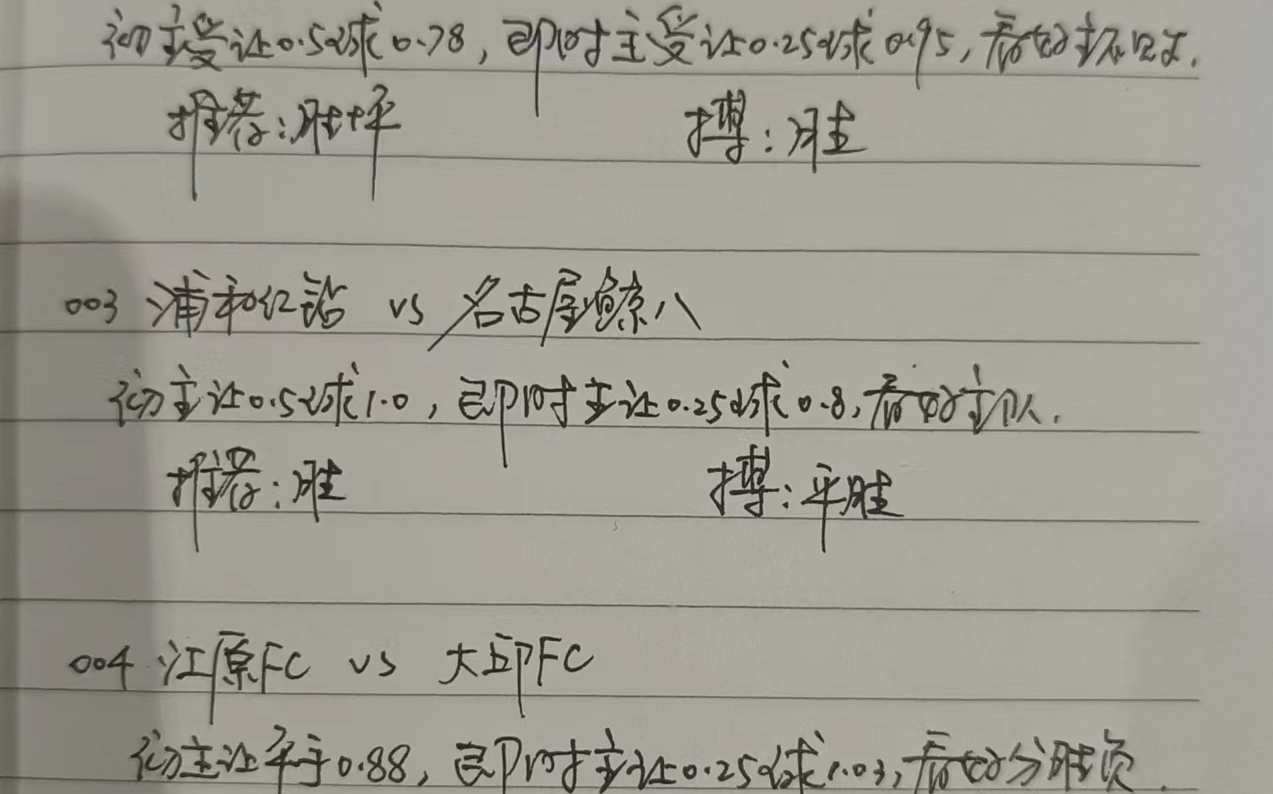 初主受让0.5球0.78，即时主受让0.25球0.95，看好主不败.
推荐：胜+平 搏：胜
003 浦和红钻 vs 名古屋鲸八
初主让0.5球1.0，即时主让0.25球0.8，看好主队.
推荐：胜 搏：平胜
004 江原FC vs 大邱FC
初主让平手0.88，即时主让0.25球1.03，看好分胜负.